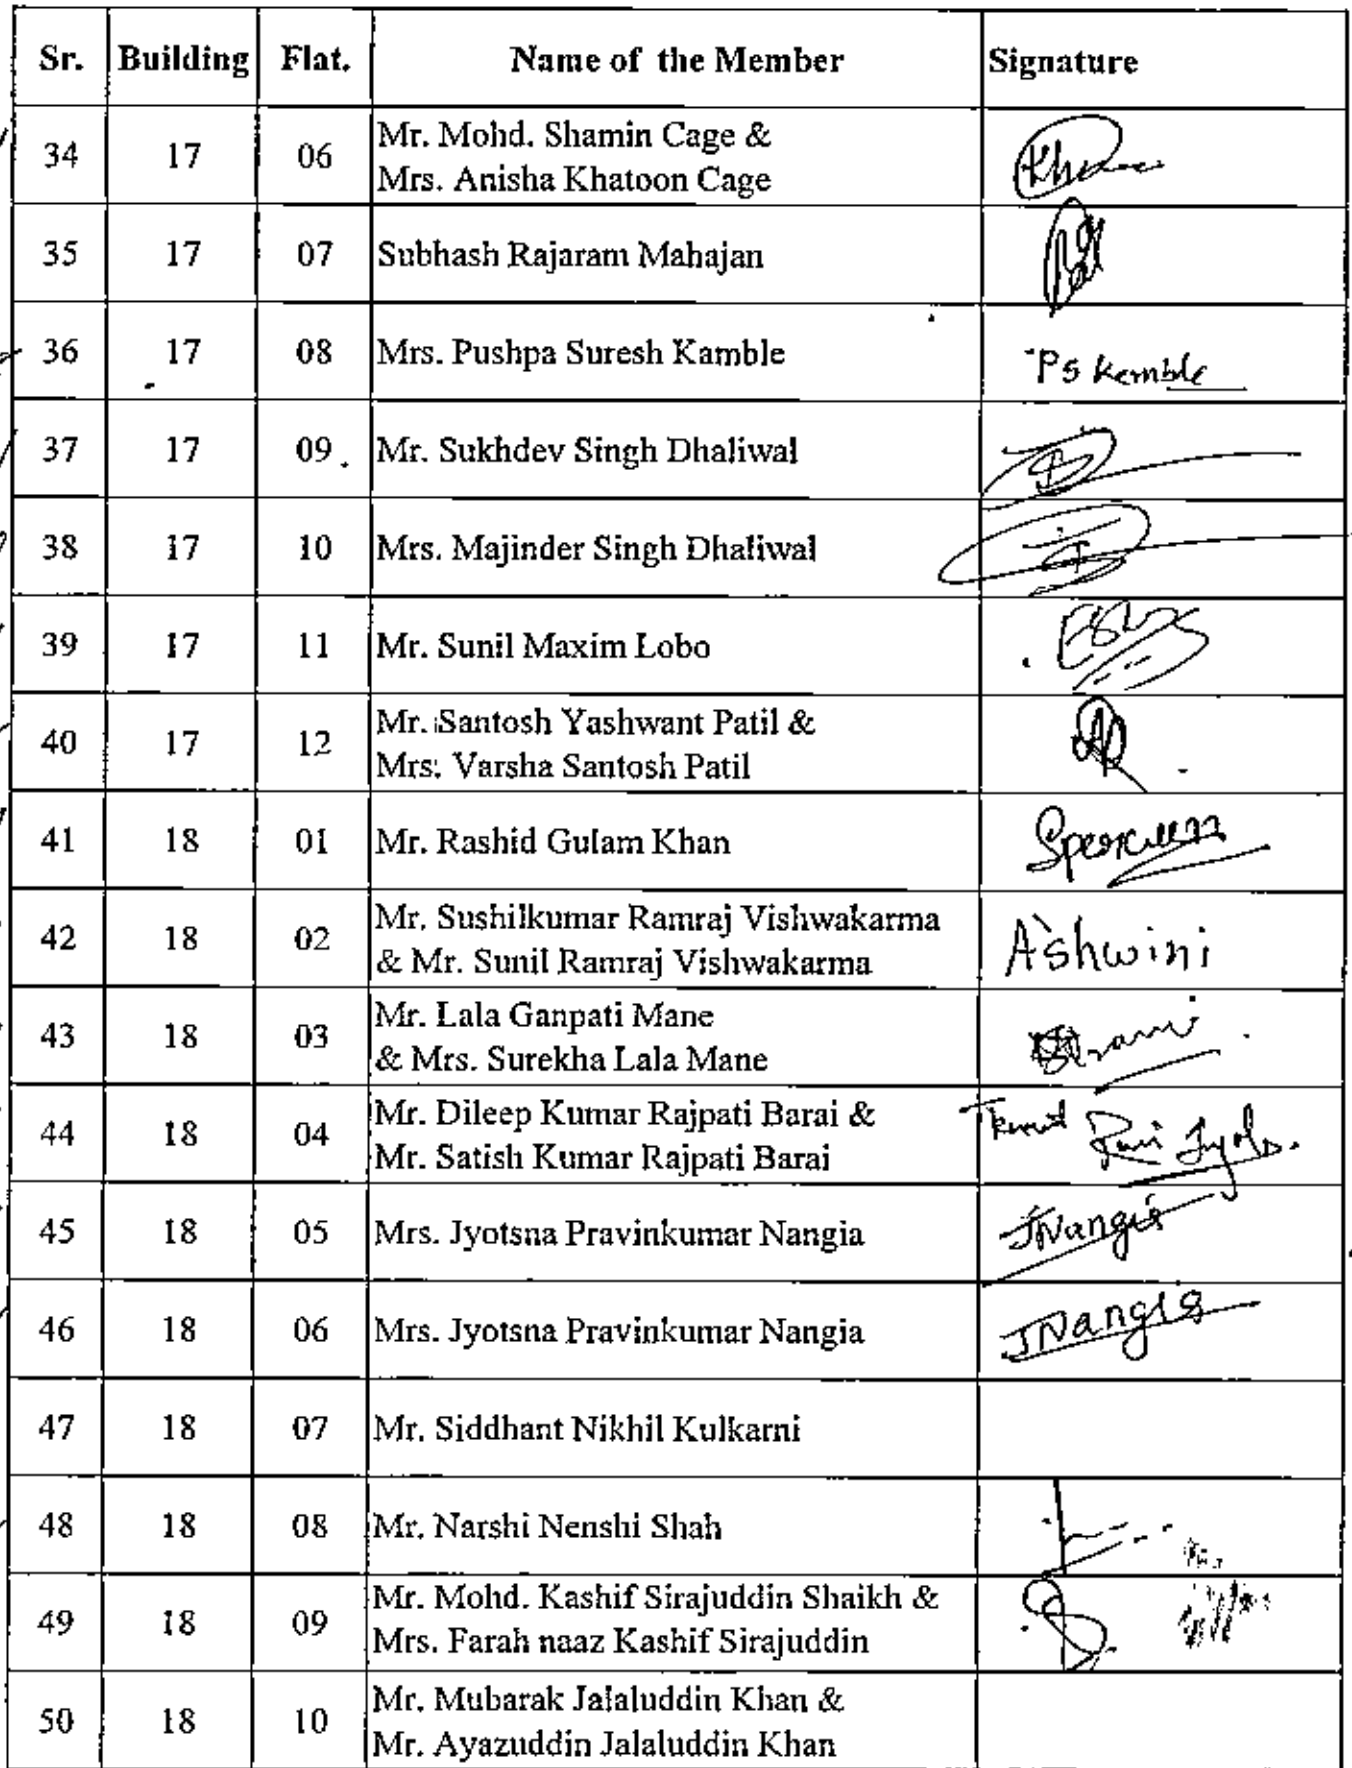 Sr. Building Flat. Name of the Member Signature
34 17 06 Mr. Mohd. Shamin Cage &
Mrs. Anisha Khatoon Cage
35 17 07 Subhash Rajaram Mahajan
36 17 08 Mrs. Pushpa Suresh Kamble PS Kemble
37 17 09 Mr. Sukhdev Singh Dhaliwal
38 17 10 Mrs. Majinder Singh Dhaliwal
39 17 11 Mr. Sunil Maxim Lobo
40 17 12 Mr. Santosh Yashwant Patil &
Mrs. Varsha Santosh Patil
41 18 01 Mr. Rashid Gulam Khan
42 18 02 Mr. Sushilkumar Ramraj Vishwakarma
& Mr. Sunil Ramraj Vishwakarma Ashwini
43 18 03 Mr. Lala Ganpati Mane
& Mrs. Surekha Lala Mane
44 18 04 Mr. Dileep Kumar Rajpati Barai &
Mr. Satish Kumar Rajpati Barai
45 18 05 Mrs. Jyotsna Pravinkumar Nangia JNangia
46 18 06 Mrs. Jyotsna Pravinkumar Nangia JNangia
47 18 07 Mr. Siddhant Nikhil Kulkarni
48 18 08 Mr. Narshi Nenshi Shah
49 18 09 Mr. Mohd. Kashif Sirajuddin Shaikh &
Mrs. Farah naaz Kashif Sirajuddin
50 18 10 Mr. Mubarak Jalaluddin Khan &
Mr. Ayazuddin Jalaluddin Khan